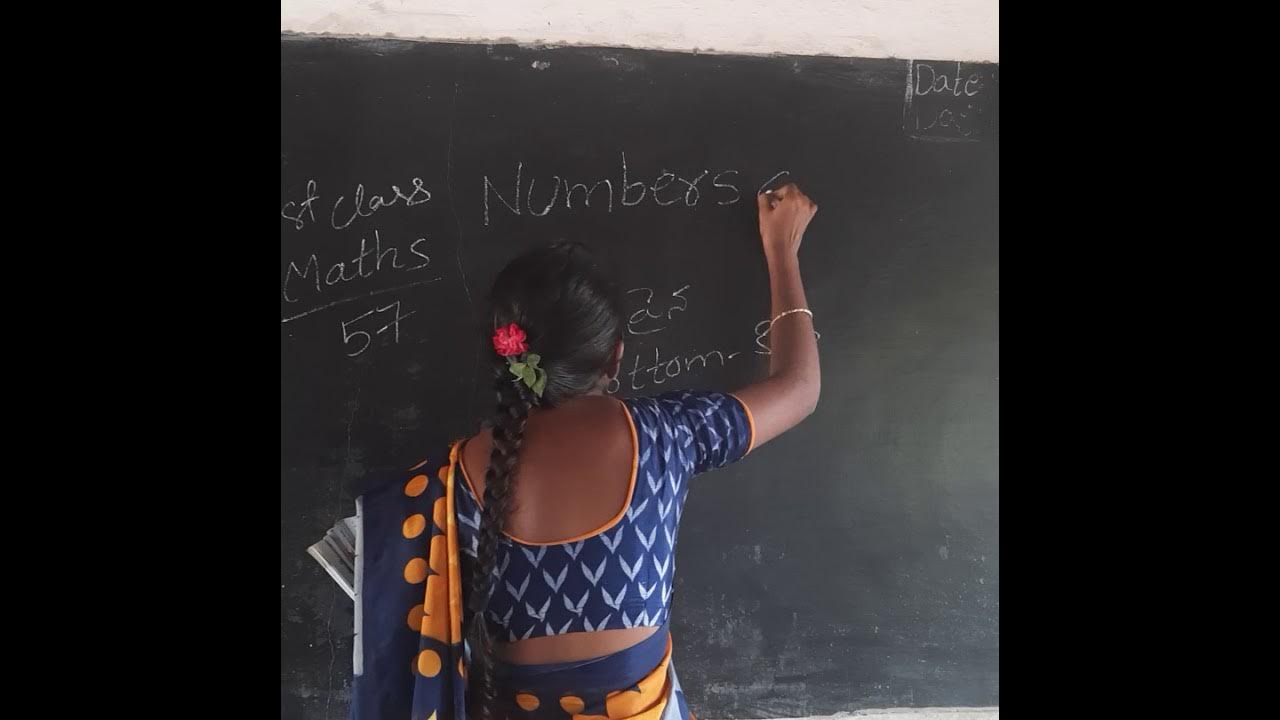 Date
Day
st class
Maths
57
Numbers
పైన
ottom-